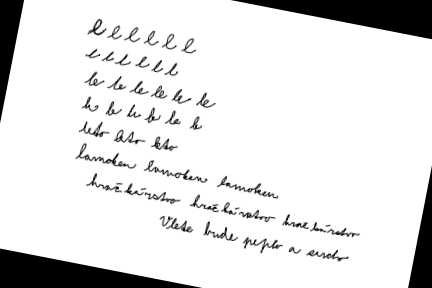 l l l l l l
le le le le le le
leto leto leto
lamoken lamoken lamoken
hračkárstvo hračkárstvo hračkárstvo
V lete bude teplo a sucho